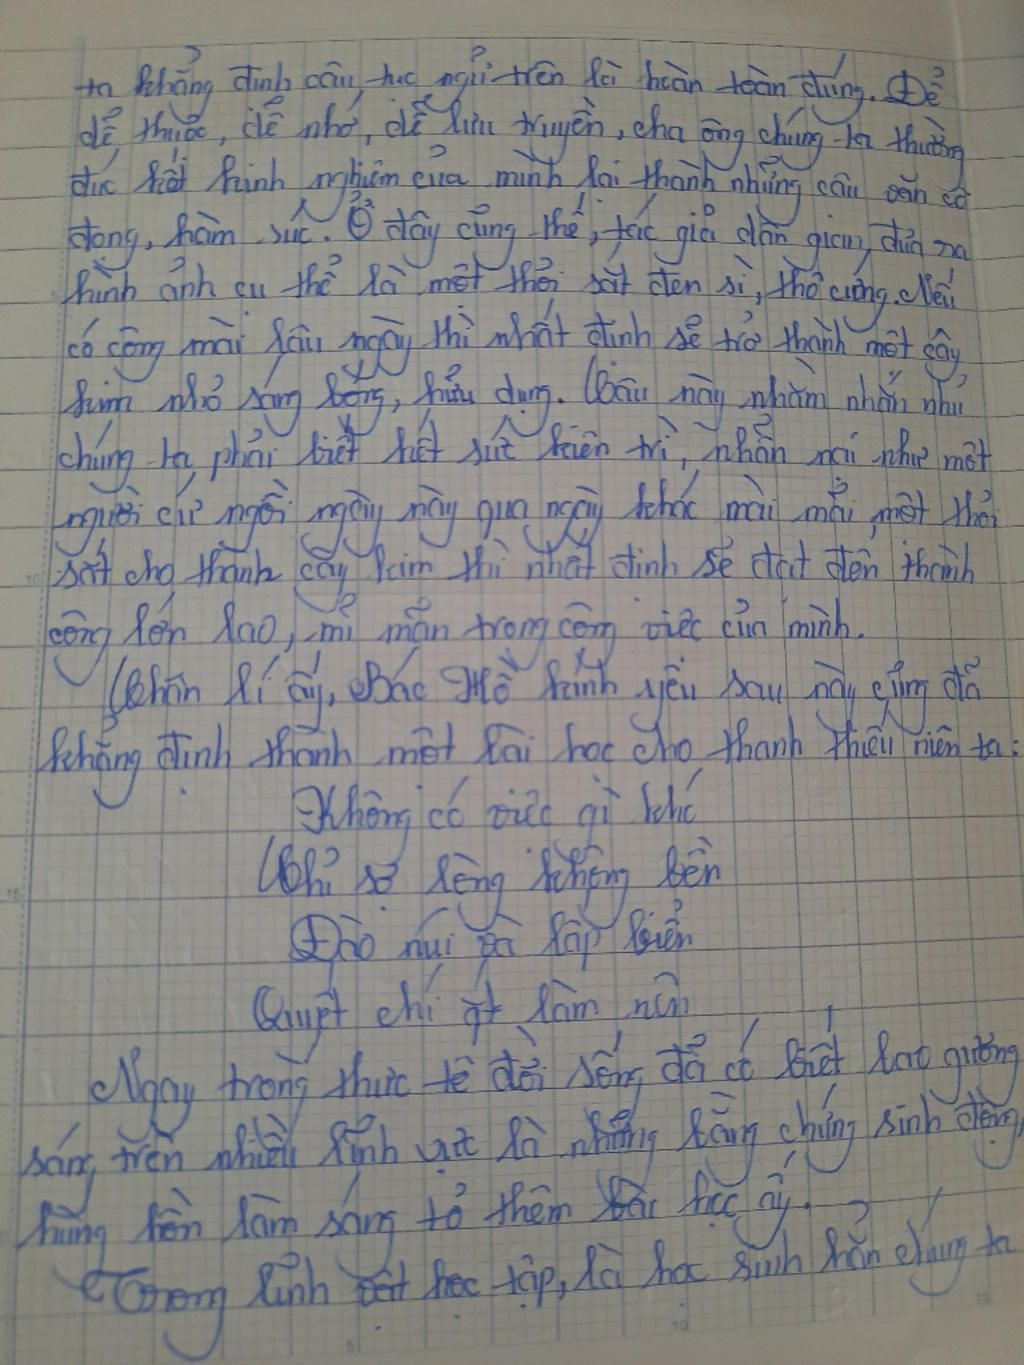 ta khẳng định câu tục ngữ trên là hoàn toàn đúng. Để
dễ thuộc, dễ nhớ, dễ lưu truyền, cha ông chúng ta thường
đúc kết kinh nghiệm của mình lại thành những câu văn cô
đọng, hàm súc. Ở đây cũng thế, tác giả dân gian đưa ra
hình ảnh cụ thể là một thỏi sắt đen sì, thô cứng. Nếu
có công mài lâu ngày thì nhất định sẽ trở thành một cây
kim nhỏ sáng bóng, hữu dụng. Câu này nhằm nhắn nhủ
chúng ta phải biết hết sức kiên trì, nhẫn nại như một
người cứ ngồi ngày này qua ngày khác mài mải một thỏi
sắt cho thành cây kim thì nhất định sẽ đạt đến thành
công lớn lao, mĩ mãn trong công việc của mình.
Chân lí ấy, Bác Hồ kính yêu sau này cũng đã
khẳng định thành một bài học cho thanh thiếu niên ta:
Không có việc gì khó
Chỉ sợ lòng không bền
Đào núi và lấp biển
Quyết chí ắt làm nên
Ngay trong thực tế đời sống đã có biết bao gương
sáng trên nhiều lĩnh vực là những bằng chứng sinh động,
hùng hồn làm sáng tỏ thêm bài học ấy.
Trong lĩnh vực học tập, là học sinh hẳn chúng ta